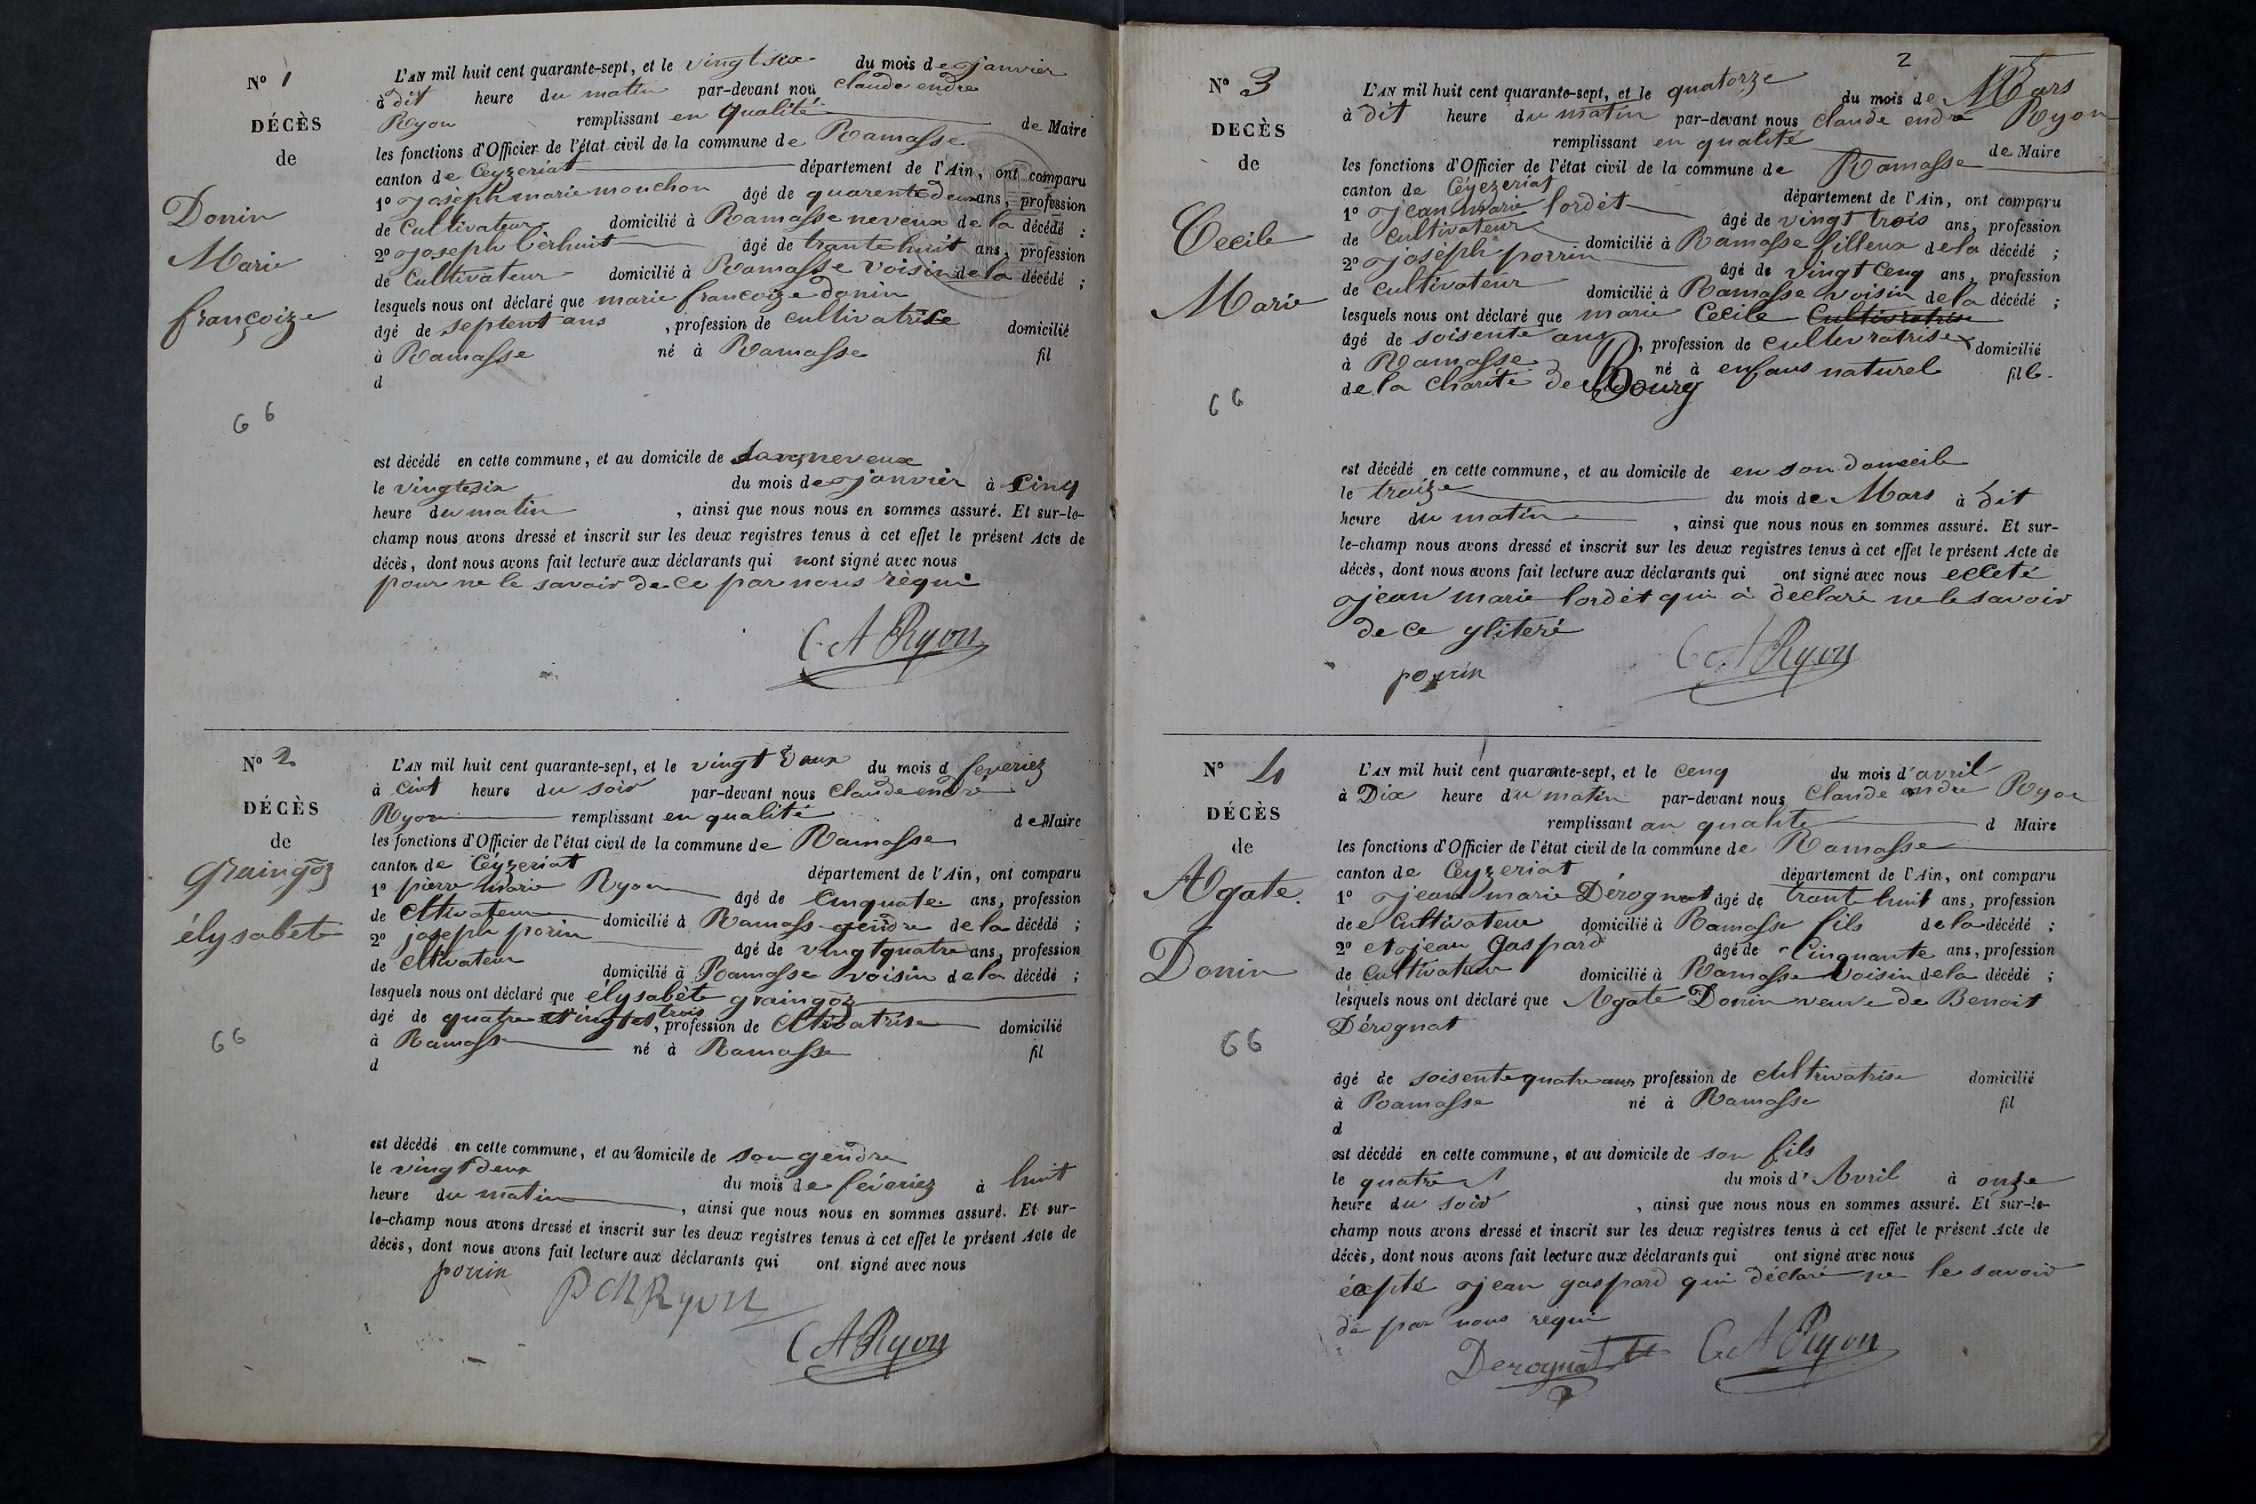 N° 1
DÉCÈS
de
Donin
Marie
françoize
66
L'AN mil huit cent quarante-sept, et le vingt six du mois de janvier
à dit heure du matin par-devant nou claude endre
Ryon remplissant en qualité de Maire
les fonctions d'Officier de l'état civil de la commune de Ramasse
canton de Ceyzeriat département de l'Ain, ont comparu
1° joseph marie monchon âgé de quarente deux ans, profession
de Cultivateur domicilié à Ramasse neveux de la décédé :
2° joseph âgé de trante huit ans, profession
de Cultivateur domicilié à Ramasse voisin de la décédé ;
lesquels nous ont déclaré que marie francoize donin
âgé de septent ans , profession de cultivatrise domicilié
à Ramasse né à Ramasse fil
d
est décédé en cette commune, et au domicile de neveux
le vingtesix du mois de janvier à Cinq
heure du matin , ainsi que nous nous en sommes assuré. Et sur-le-
champ nous avons dressé et inscrit sur les deux registres tenus à cet effet le présent Acte de
décès, dont nous avons fait lecture aux déclarants qui nont signé avec nous
pour ne le savoir de ce par nous rèqui
C A Ryon
N° 2
DÉCÈS
de
graingoz
élysabete
66
L'AN mil huit cent quarante-sept, et le vingt deux du mois d feveriez
à cint heure du soir par-devant nous Claude endré
Ryon remplissant en qualité de Maire
les fonctions d'Officier de l'état civil de la commune de Ramasse
canton de Céyzeriat département de l'Ain, ont comparu
1° pierre marie Ryon âgé de Cinquate ans, profession
de cltivateur domicilié à Ramass gendre de la décédé ;
2° joseph porin âgé de vingtquatre ans, profession
de cltivateur domicilié à Ramasse voisin de la décédé ;
lesquels nous ont déclaré que élysabète graingoz
âgé de quatre vingtes trois, profession de cltivatrise domicilié
à Ramasse né à Ramasse fil
d
est décédé en cette commune, et au domicile de son gendre
le vingt deux du mois de féveriez à huit
heure du matin , ainsi que nous nous en sommes assuré. Et sur-
le-champ nous avons dressé et inscrit sur les deux registres tenus à cet effet le présent Acte de
décès, dont nous avons fait lecture aux déclarants qui ont signé avec nous
porrin
P M Ryon
C A Ryon
2
N° 3
DECÈS
de
Cecile
Marie
66
L'AN mil huit cent quarante-sept, et le quatorze du mois de Mars
à dit heure du matin par-devant nous Claude endre Ryon
remplissant en qualité de Maire
les fonctions d'Officier de l'état civil de la commune de Ramasse
canton de Céyezeriat département de l'Ain, ont comparu
1° jean marie lordet âgé de vingt trois ans, profession
de cultivateur domicilié à Ramasse filleux de la décédé ;
2° joséph porrin âgé de vingt cenq ans, profession
de cultivateur domicilié à Ramasse voisin de la décédé ;
lesquels nous ont déclaré que marie Cecile Cultivatrise
âgé de soisente ans, profession de cultivratrise domicilié
à Ramasse né à enfans naturel fille
de la charité de Bourg
est décédé en cette commune, et au domicile de en son domecile
le traize du mois de Mars à dit
heure du matin , ainsi que nous nous en sommes assuré. Et sur-
le-champ nous avons dressé et inscrit sur les deux registres tenus à cet effet le présent Acte de
décès, dont nous avons fait lecture aux déclarants qui ont signé avec nous ecceté
jean marie lordet qui à declaré ne le savoir
de ce
porrin
C A Ryon
N° 4
DÉCÈS
de
Agate
Donin
66
L'AN mil huit cent quarante-sept, et le cenq du mois d'avril
à Dix heure du matin par-devant nous Claude andre Ryon
remplissant an qualite d Maire
les fonctions d'Officier de l'état civil de la commune de Ramasse
canton de Ceyzeriat département de l'Ain, ont comparu
1° jean marie Dérognat âgé de trante huit ans, profession
de Cultivateur domicilié à Ramasse fils de la décédé ;
2° et jean Gaspard âgé de Cinquante ans, profession
de Cultivateur domicilié à Ramasse voisin de la décédé ;
lesquels nous ont déclaré que Agate Donin veuve de Benoit
Dérognat
âgé de soisente quatre ans profession de cultrivatrise domicilié
à Ramasse né à Ramasse fil
d
est décédé en cette commune, et au domicile de son fils
le quatre du mois d'Avril à onze
heure du soir , ainsi que nous nous en sommes assuré. Et sur-le-
champ nous avons dressé et inscrit sur les deux registres tenus à cet effet le présent Acte de
décès, dont nous avons fait lecture aux déclarants qui ont signé avec nous
jean gaspard qui déclaré ne le savoir
de par nous requi
Derognat
C A Ryon